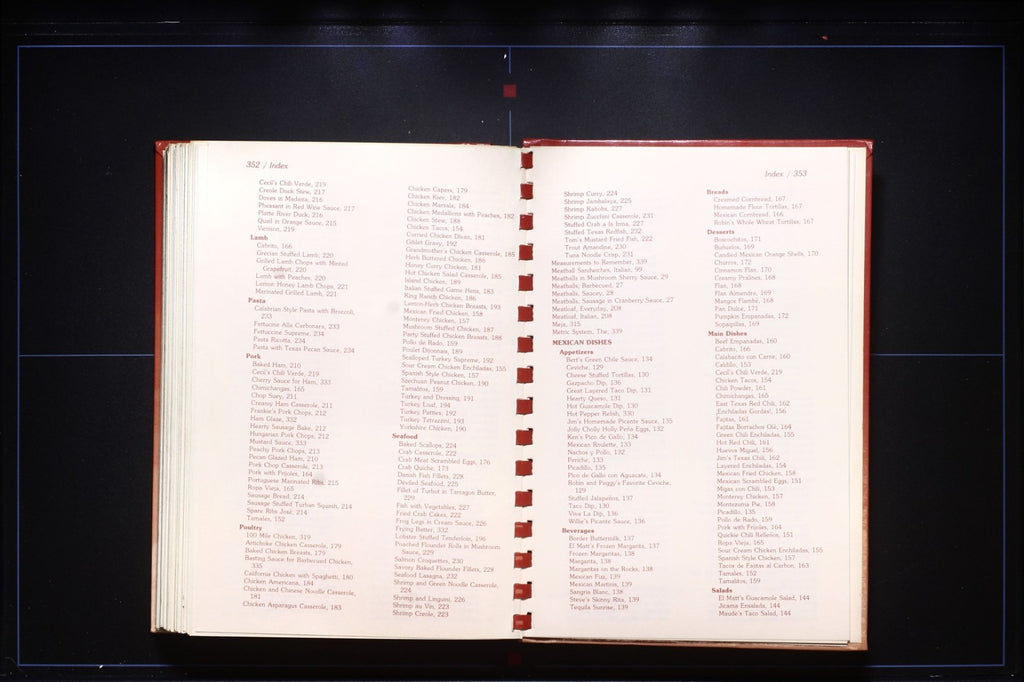 352 / Index
Cecil's Chili Verde, 219
Creole Duck Stew, 217
Doves in Madeira, 216
Pheasant in Red Wine Sauce, 217
Platte River Duck, 216
Quail in Orange Sauce, 215
Venison, 219
Lamb
Cabrito, 166
Grecian Stuffed Lamb, 220
Grilled Lamb Chops with Minted
Grapefruit, 220
Lamb with Peaches, 220
Lemon-Honey Lamb Chops, 221
Marinated Grilled Lamb, 221
Pasta
Calabrian Style Pasta with Broccoli,
233
Fettucine Alla Carbonara, 233
Fettuccine Supreme, 234
Pasta Ricotta, 234
Pasta with Texas Pecan Sauce, 234
Pork
Baked Ham, 210
Cecil's Chili Verde, 219
Cherry Sauce for Ham, 333
Chimichangas, 165
Chop Suey, 211
Creamy Ham Casserole, 211
Frankie's Pork Chops, 212
Ham Glaze, 332
Hearty Sausage Bake, 212
Hungarian Pork Chops, 212
Mustard Sauce, 333
Peachy Pork Chops, 213
Pecan Glazed Ham, 210
Pork Chop Casserole, 213
Pork with Frijoles, 164
Portuguese Marinated Ribs, 215
Ropa Vieja, 165
Sausage Bread, 214
Sausage Stuffed Turban Squash, 214
Spare Ribs José, 214
Tamales, 152
Poultry
100 Mile Chicken, 319
Artichoke Chicken Casserole, 179
Baked Chicken Breasts, 179
Basting Sauce for Barbecued Chicken,
335
California Chicken with Spaghetti, 180
Chicken Americana, 184
Chicken and Chinese Noodle Casserole,
181
Chicken Asparagus Casserole, 183
Chicken Capers, 179
Chicken Kiev, 182
Chicken Marsala, 184
Chicken Medallions with Peaches, 182
Chicken Stew, 188
Chicken Tacos, 154
Curried Chicken Divan, 181
Giblet Gravy, 192
Grandmother's Chicken Casserole, 185
Herb Buttered Chicken, 186
Honey Curry Chicken, 181
Hot Chicken Salad Casserole, 185
Island Chicken, 189
Italian Stuffed Game Hens, 183
King Ranch Chicken, 186
Lemon-Herb Chicken Breasts, 193
Mexican Fried Chicken, 158
Monterey Chicken, 157
Mushroom Stuffed Chicken, 187
Party Stuffed Chicken Breasts, 188
Pollo de Rado, 159
Poulet Dijonnais, 189
Scalloped Turkey Supreme, 192
Sour Cream Chicken Enchiladas, 155
Spanish Style Chicken, 157
Szechuan Peanut Chicken, 190
Tamalitos, 159
Turkey and Dressing, 191
Turkey Loaf, 194
Turkey Patties, 192
Turkey Tetrazzini, 193
Yorkshire Chicken, 190
Seafood
Baked Scallops, 224
Crab Casserole, 222
Crab Meat Scrambled Eggs, 176
Crab Quiche, 173
Danish Fish Fillets, 228
Deviled Seafood, 225
Fillet of Turbot in Tarragon Butter,
229
Fish with Vegetables, 227
Fried Crab Cakes, 222
Frog Legs in Cream Sauce, 226
Frying Batter, 332
Lobster Stuffed Tenderloin, 196
Poached Flounder Rolls in Mushroom
Sauce, 229
Salmon Croquettes, 230
Savory Baked Flounder Fillets, 228
Seafood Lasagna, 232
Shrimp and Green Noodle Casserole,
224
Shrimp and Linguini, 226
Shrimp au Vin, 223
Shrimp Creole, 223
Index / 353
Shrimp Curry, 224
Shrimp Jambalaya, 225
Shrimp Kabobs, 227
Shrimp Zucchini Casserole, 231
Stuffed Crab a la Irma, 227
Stuffed Texas Redfish, 232
Tom's Mustard Fried Fish, 222
Trout Amandine, 230
Tuna Noodle Crisp, 231
Measurements to Remember, 339
Meatball Sandwiches, Italian, 99
Meatballs in Mushroom Sherry Sauce, 29
Meatballs, Barbecued, 27
Meatballs, Saucey, 28
Meatballs, Sausage in Cranberry Sauce, 27
Meatloaf, Everyday, 208
Meatloaf, Italian, 208
Meja, 315
Metric System, The, 339
MEXICAN DISHES
Appetizers
Bert's Green Chile Sauce, 134
Ceviche, 129
Cheese Stuffed Tortillas, 130
Gazpacho Dip, 136
Great Layered Taco Dip, 131
Hearty Queso, 131
Hot Guacamole Dip, 130
Hot Pepper Relish, 330
Jim's Homemade Picante Sauce, 135
Jolly Cholly Holly Peña Eggs, 132
Ken's Pico de Gallo, 134
Mexican Roulette, 133
Nachos y Pollo, 132
Periche, 133
Picadillo, 135
Pico de Gallo con Aguacate, 134
Robin and Peggy's Favorite Ceviche,
129
Stuffed Jalapeños, 137
Taco Dip, 130
Viva La Dip, 136
Willie's Picante Sauce, 136
Beverages
Border Buttermilk, 137
El Matt's Frozen Margarita, 137
Frozen Margaritas, 138
Margarita, 138
Margaritas on the Rocks, 138
Mexican Fizz, 139
Mexican Martinis, 139
Sangria Blanc, 138
Steve's Skinny Rita, 139
Tequila Sunrise, 139
Breads
Creamed Cornbread, 167
Homemade Flour Tortillas, 167
Mexican Cornbread, 166
Robin's Whole Wheat Tortillas, 167
Desserts
Boscochitos, 171
Buñuelos, 169
Candied Mexican Orange Shells, 170
Churros, 172
Cinnamon Flan, 170
Creamy Pralines, 168
Flan, 168
Flan Almendra, 169
Mangos Flambé, 168
Pan Dulce, 171
Pumpkin Empanadas, 172
Sopapillas, 169
Main Dishes
Beef Empanadas, 160
Cabrito, 166
Calabacito con Carne, 160
Caldillo, 153
Cecil's Chili Verde, 219
Chicken Tacos, 154
Chili Powder, 161
Chimichangas, 165
East Texas Red Chili, 162
¡Enchiladas Gordas!, 156
Fajitas, 161
Fajitas Borrachos Olé, 164
Green Chili Enchiladas, 155
Hot Red Chili, 161
Huevos Miguel, 156
Jim's Texas Chili, 162
Layered Enchiladas, 154
Mexican Fried Chicken, 158
Mexican Scrambled Eggs, 151
Migas con Chili, 153
Monterey Chicken, 157
Montezuma Pie, 158
Picadillo, 135
Pollo de Rado, 159
Pork with Frijoles, 164
Quickie Chili Relleños, 151
Ropa Vieja, 165
Sour Cream Chicken Enchiladas, 155
Spanish Style Chicken, 157
Tacos de Fajitas al Carbon, 163
Tamales, 152
Tamalitos, 159
Salads
El Matt's Guacamole Salad, 144
Jicama Ensalada, 144
Maude's Taco Salad, 144